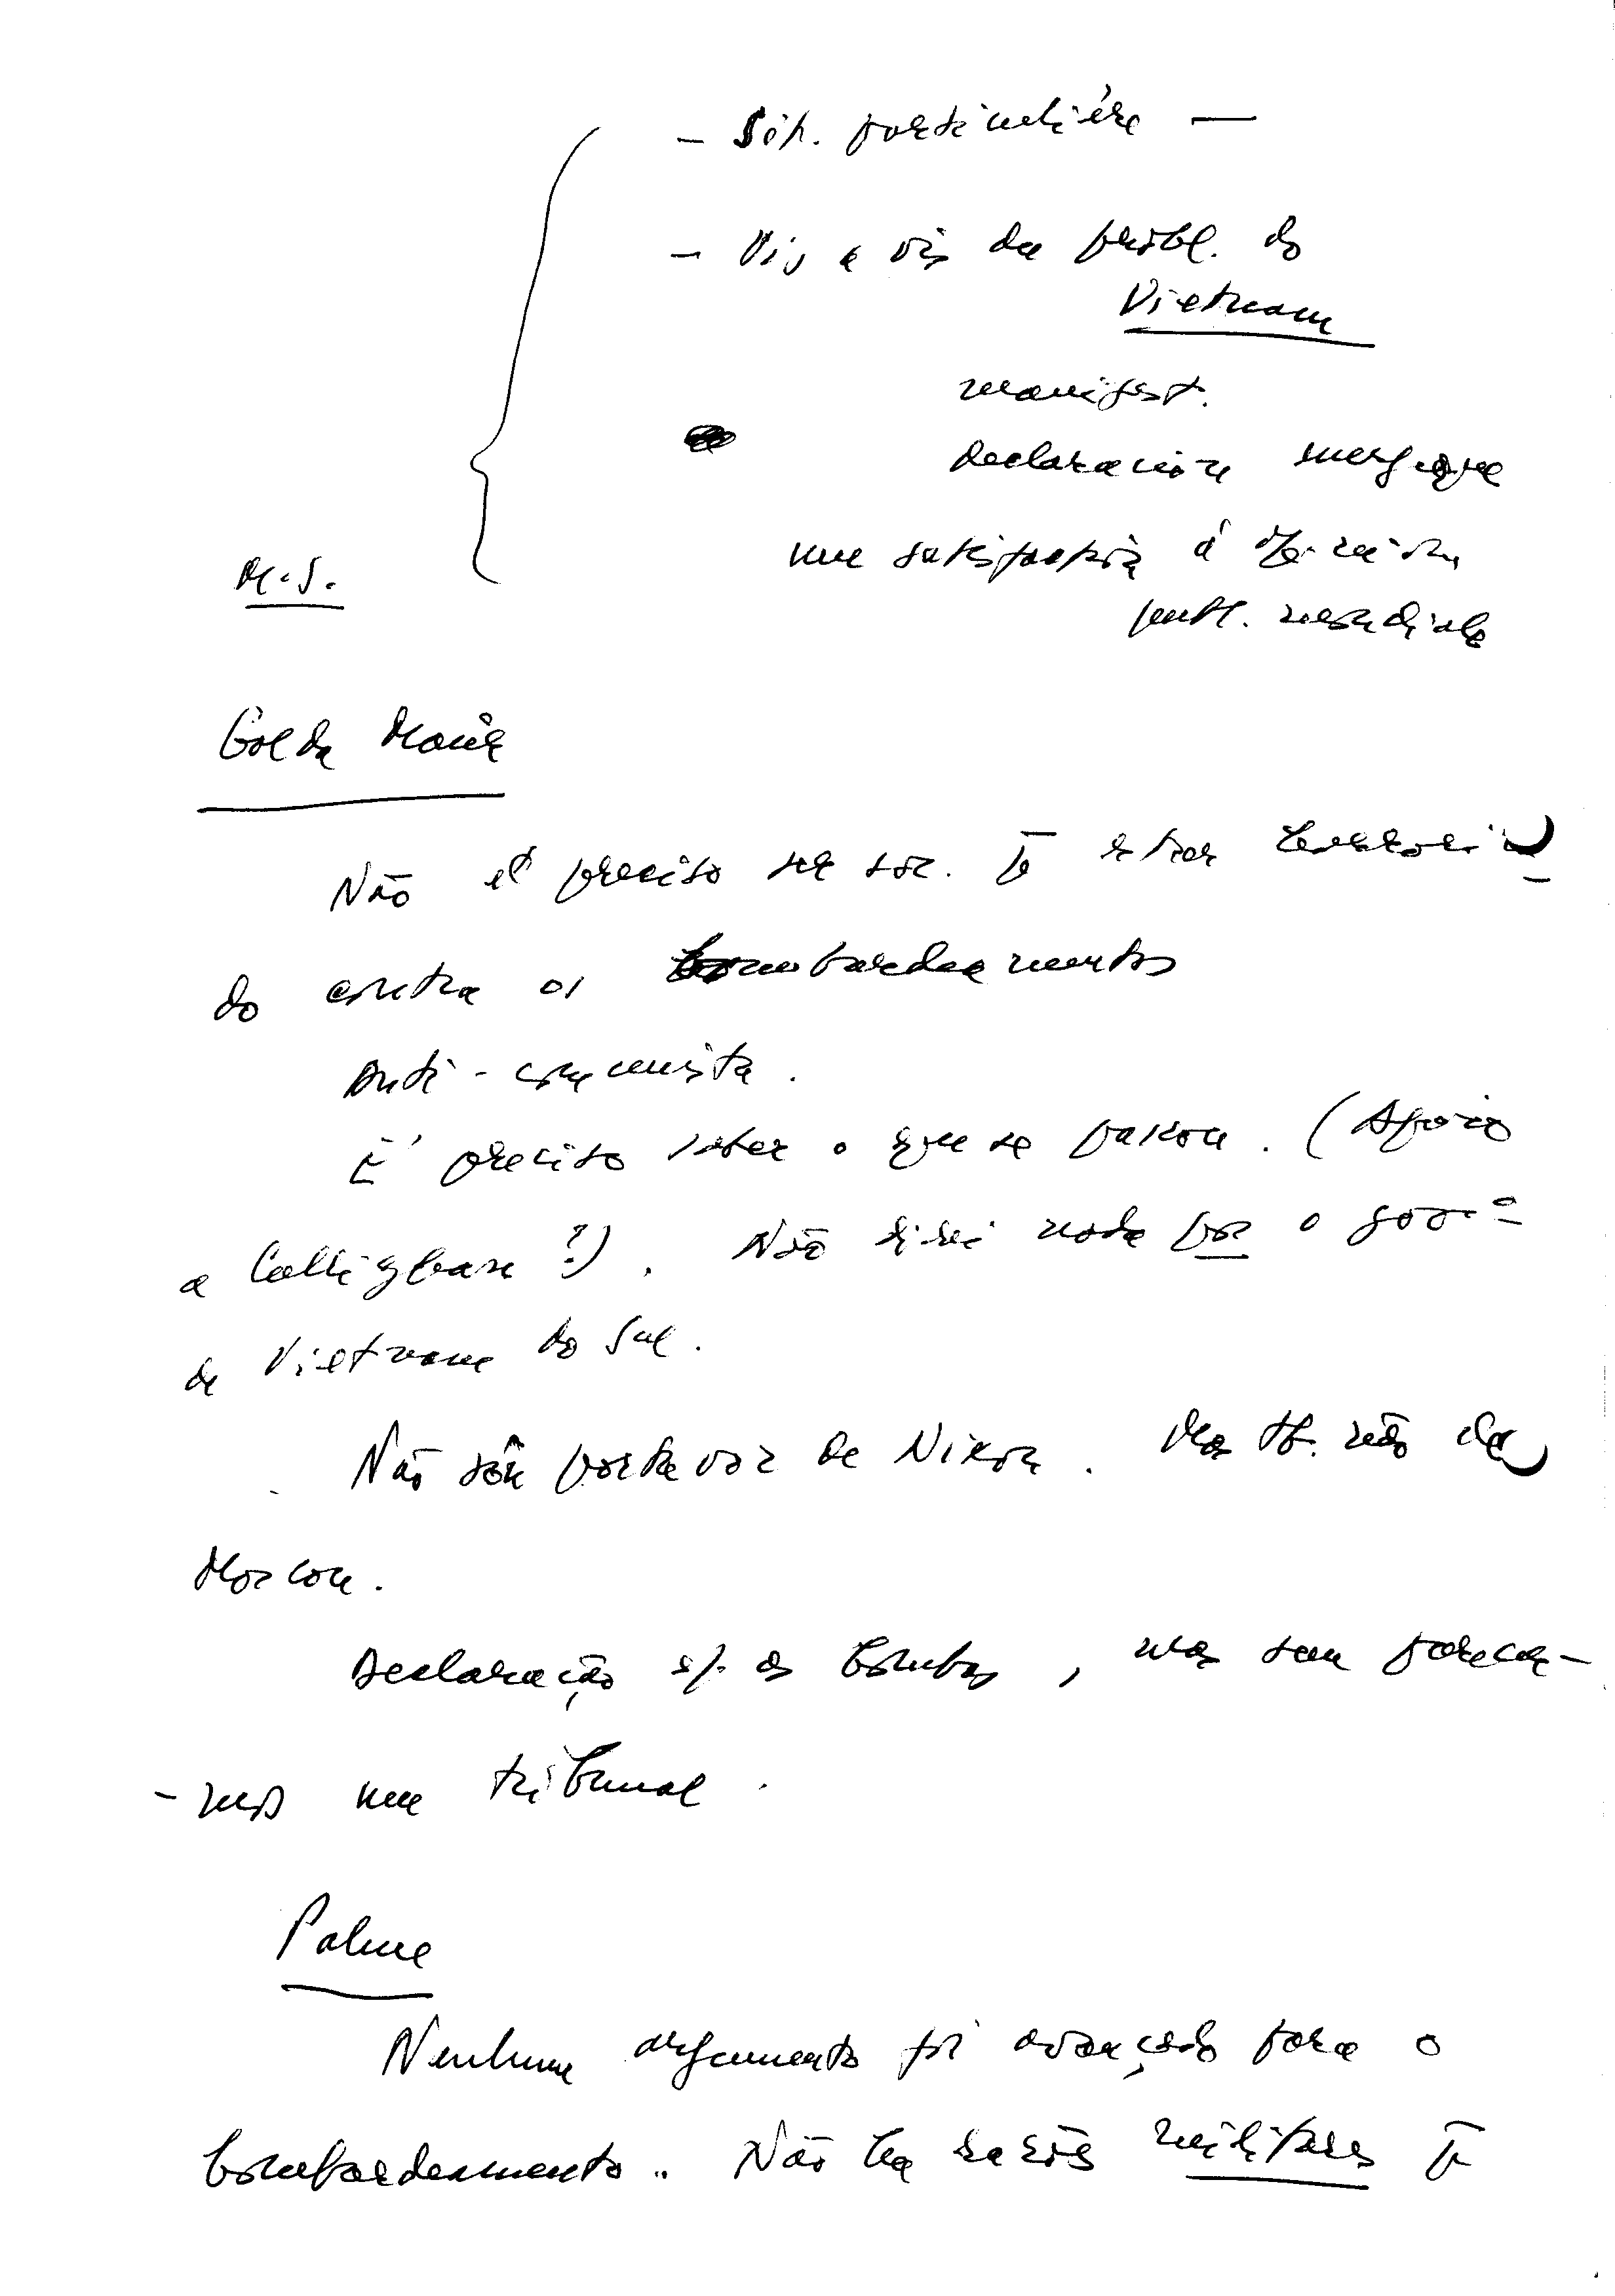 - Sit. particulière -
- Vis a vis du probl. do
Vietnam
manifest.
declaración energique
une satisfación à opinión
publ. mondiale
M.S.
Golda Maïr
Não é preciso ser soc. p estar horrori-
do contra os bombardeamentos
Anti-comunista.
É preciso saber o que se passou. (Apoio
a ?). Não direi nada por o gov.º
de Vietname do Sul.
Não sou porta voz de Nixon. Mas tb. não de
Moscou.
Declaração s/. os bombs, mas sem parecer-
-mos um tribunal.
Palme
Nenhum argumento foi avançado para o
bombardeamento. Não há razões militares p